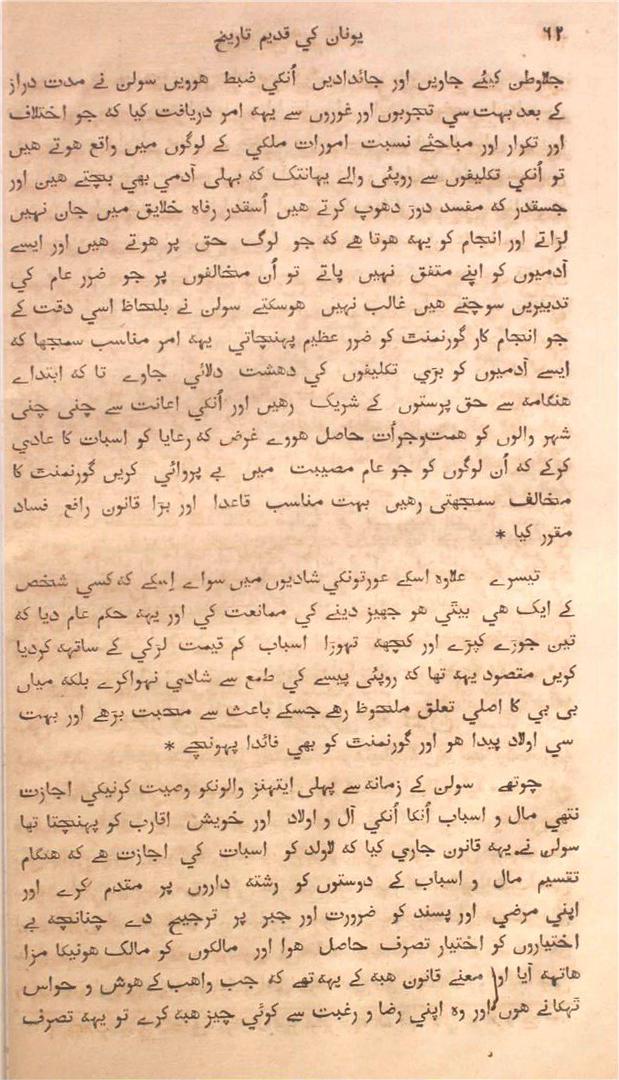 ۶۲ یونان کي قدیم تاریخ
جلاوطن کیئے جاویں اور جائدادیں اُنکي ضبط هوویں سولن نے مدت دراز
کے بعد بہت سي تجربوں اور غوروں سے یہہ امر دریافت کیا کہ جو اختلاف
اور تکرار اور مباحثے نسبت امورات ملکي کے لوگوں میں واقع هوتے هیں
تو اُنکي تکلیفوں سے روپئی والے یہانتک کہ بھلی آدمي بھي بچتے هین اور
جسقدر کہ مفسد دوڑ دھوپ کرتے هیں اُسقدر رفاہ خلایق میں جان نہیں
لڑاتے اور انجام کو یہہ هوتا هے کہ جو لوگ حق پر هوتے هیں اور ایسے
آدمیوں کو اپنے متفق نہیں پاتے تو اُن مخالفوں پر جو ضرر عام کي
تدبیریں سوچتے هیں غالب نہیں هوسکتے سولن نے بلحاظ اسي دقت کے
جو انجام کار گورنمنٹ کو ضرر عظیم پہنچاتي یہہ امر مناسب سمجھا کہ
ایسے آدمیوں کو بڑي تکلیفوں کي دهشت دلائي جاوے تا کہ ابتداے
هنگامہ سے حق پرستوں کے شریک رهیں اور اُنکي اعانت سے چنی چنی
شہر والوں کو همت وجرأت حاصل هووے غرض کہ رعایا کو اسبات کا عادي
کرکے کہ اُن لوگوں کو جو عام مصیبت میں بے پروائي کریں گورنمنٹ کا
مخالف سمجھتی رهیں بہت مناسب قاعدا اور بڑا قانون رافع فساد
مقرر کیا *
تیسرے علاوہ اسکے عورتونکي شادیوں میں سواے اِسکے کہ کسي شخص
کے ایک هي بیٹي هو جهیز دینے کي ممانعت کي اور یہہ حکم عام دیا کہ
تین جوڑے کپڑے اور کچھہ تھوڑا اسباب کم قیمت لڑکي کے ساتھہ کردیا
کریں مقصود یہہ تھا کہ روپئی پیسے کي طمع سے شادي نہواکرے بلکہ میاں
بی بي کا اصلي تعلق ملحوظ رهے جسکے باعث سے محبت بڑھے اور بہت
سي اولاد پیدا هو اور گورنمنٹ کو بھي فائدا پہونچے *
چوتھے سولن کے زمانہ سے پہلی ایتھنز والونکو وصیت کرنیکي اجازت
نتھي مال و اسباب اُنکا اُنکي آل و اولاد اور خویش اقارب کو پہنچتا تھا
سولن نے یہہ قانون جاري کیا کہ لاولد کو اسبات کي اجازت هے کہ هنگام
تقسیم مال و اسباب کے دوستوں کو رشتہ داروں پر مقدم کرے اور
اپني مرضي اور پسند کو ضرورت اور جبر پر ترجیح دے چنانچہ بے
اختیاروں کو اختیار تصرف حاصل هوا اور مالکوں کو مالک هونیکا مزا
هاتھہ آیا اور معنے قانون هبہ کے یہہ تھے کہ جب واهب کے هوش و حواس
ٹھکانے هوں اور وہ اپني رضا و رغبت سے کوئي چیز هبہ کرے تو یہہ تصرف